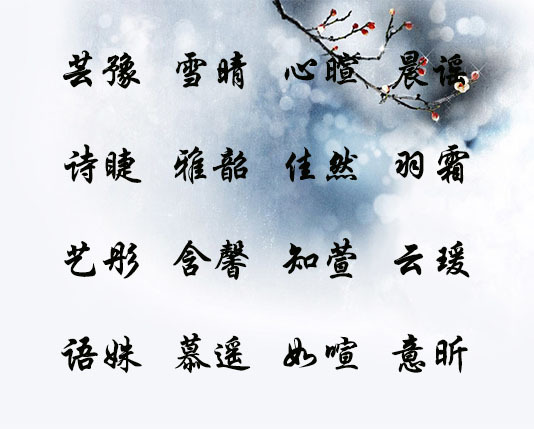 芸豫 雪晴 心暄 晨谣
诗睫 雅韶 佳然 羽霜
艺彤 含馨 知萱 云瑗
语姝 慕遥 如喧 意昕